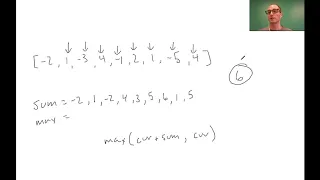 [-2, 1, -3, 4, -1, 2, 1, -5, 4]
6
sum = -2, 1, -2, 4, 3, 5, 6, 1, 5
max =
max(cur + sum, cur)